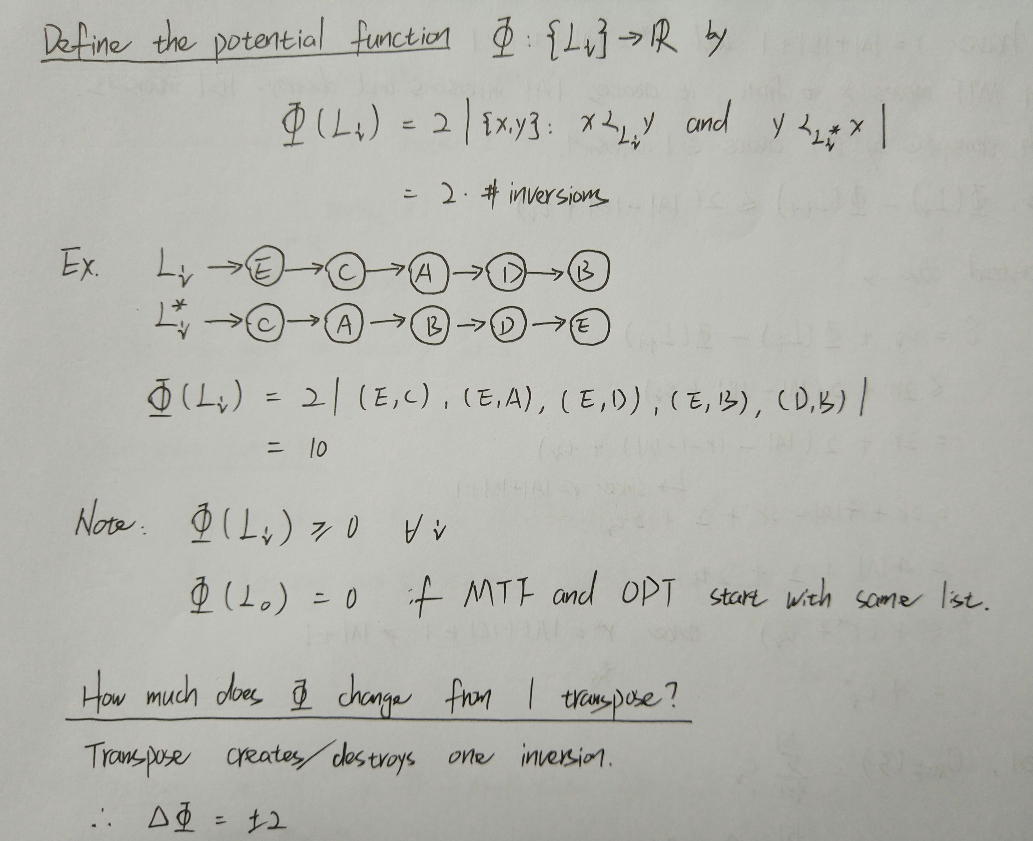 Define the potential function Φ : {Lᵢ} → ℝ by
Φ(Lᵢ) = 2 | {x,y} : x <_{Lᵢ} y and y <_{Lᵢ*} x |
= 2 · # inversions
Ex. Lᵢ → E → C → A → D → B
Lᵢ* → C → A → B → D → E
Φ(Lᵢ) = 2 | (E,C), (E,A), (E,D), (E,B), (D,B) |
= 10
Note: Φ(Lᵢ) ≥ 0 ∀ i
Φ(L₀) = 0 if MTF and OPT start with same list.
How much does Φ change from 1 transpose?
Transpose creates/destroys one inversion.
∴ ΔΦ = ±2